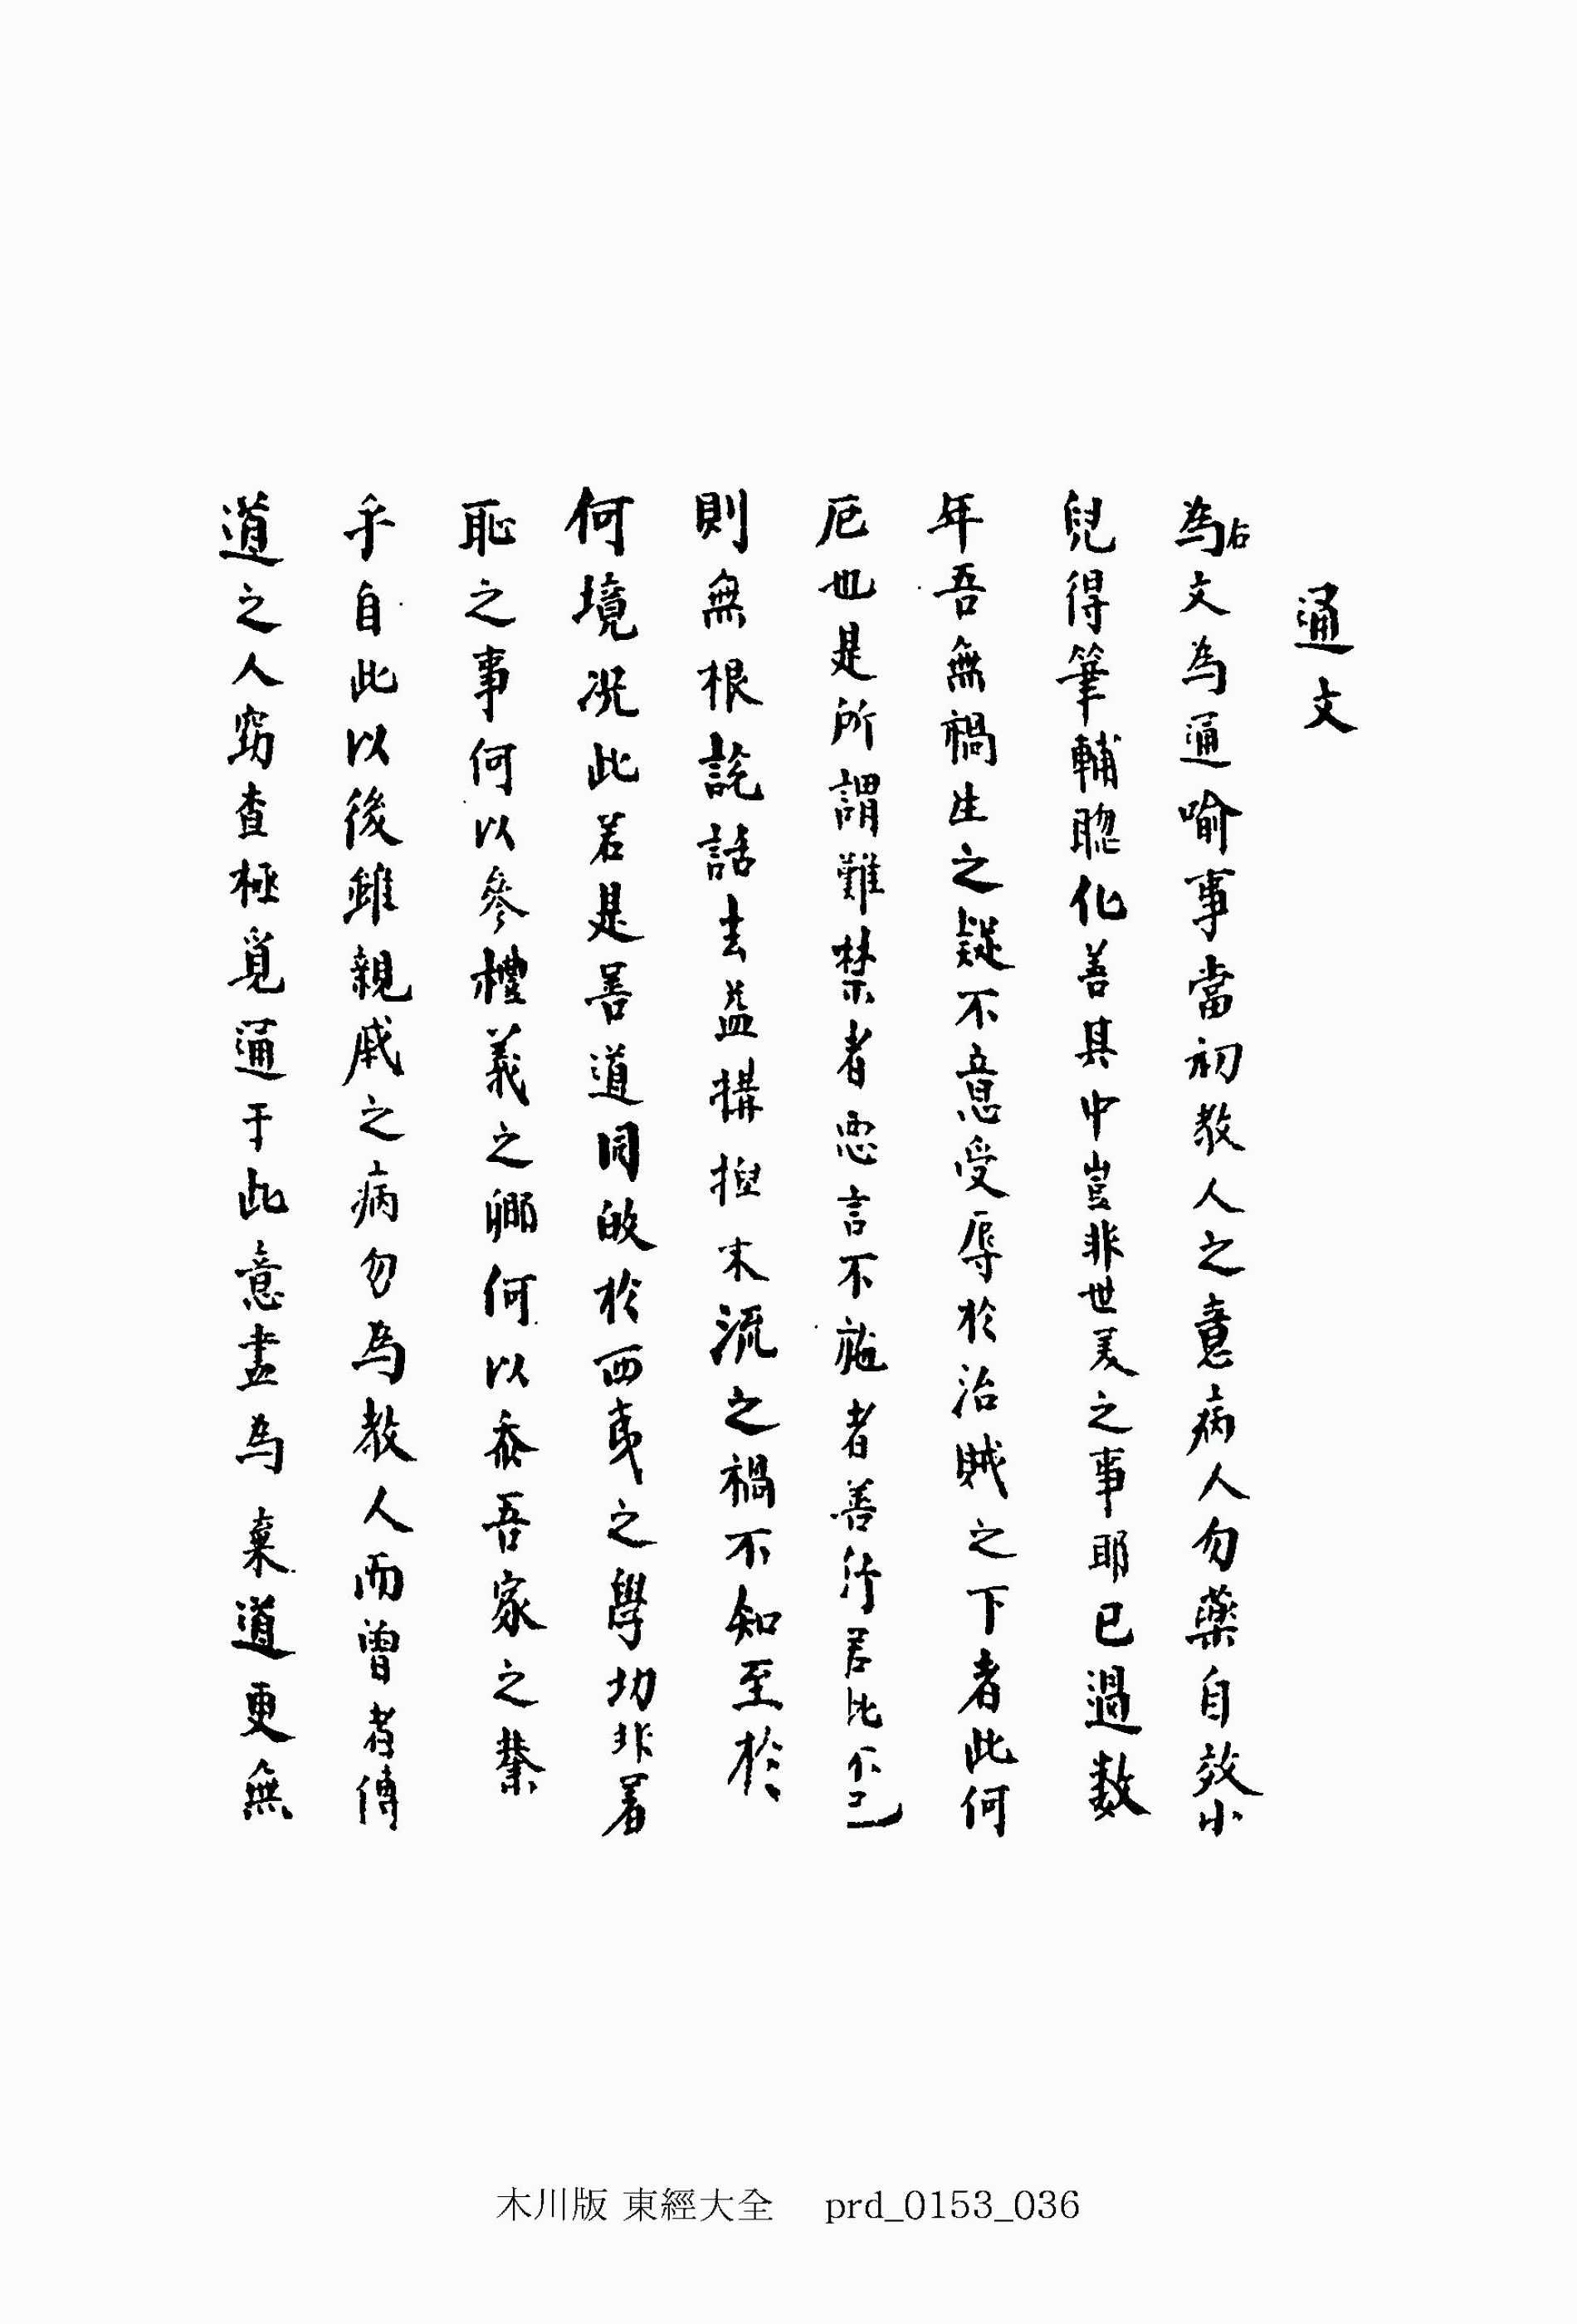 通文
右為文為通喻事當初教人之意病人勿藥自效小
兒得筆輔聡化善其中豈非世美之事耶已過數
年吾無禍生之疑不意受辱於治賊之下者此何
厄也是所謂難禁者悪言不施者善行若此不已
則無根說話去益搆捏末流之禍不知至於
何境况此若是善道同故於西夷之學切非着
恥之事何以參禮義之鄉何以忝吾家之業
乎自此以後雖親戚之病勿為教人而曾者傳
道之人窈查極覓通于此意盡為棄道更無
木川版 東經大全 prd_0153_036